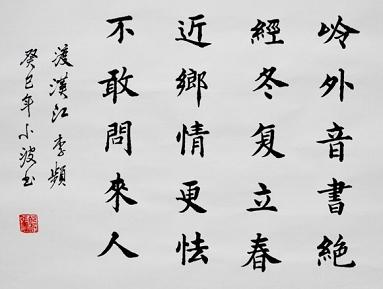 岭外音書絕
經冬复立春
近鄉情更怯
不敢問來人
渡漢江 李頻
癸巳年小波书